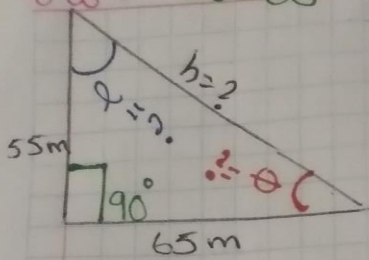 h=?
α=?
55m
?=θ
90°
65m